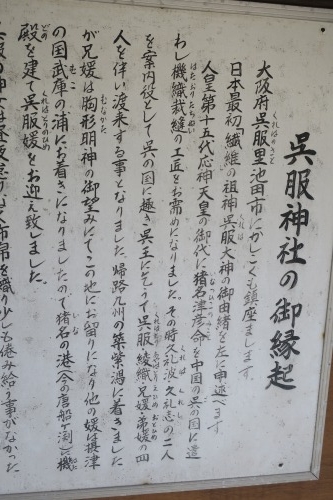 呉服神社の御縁起
大阪府呉服里池田市にかしこくも鎮座まします
日本最初「繊維の祖神」呉服大神の御由緒を左に申述べます
人皇第十五代応神天皇の御代に猪名津彦命を中国の呉の国に遣
わし機織裁縫の工匠をお需めになりました。その時久礼波・久礼志の二人
を案内役として呉の国に趣き呉王に乞うて呉服 綾織 兄媛 弟媛の四
人を伴い渡来する事となりました。帰路九州の築紫潟に着きました
が兄媛は胸形明神の御望みにてこの地にお留りになり他の媛は摂津
の国武庫の浦にお着きになりましたので猪名の港(今の唐船ヶ渕)に機
殿を建て呉服媛をお迎え致しました。
布帛を織り少しも倦み給う事がなかった